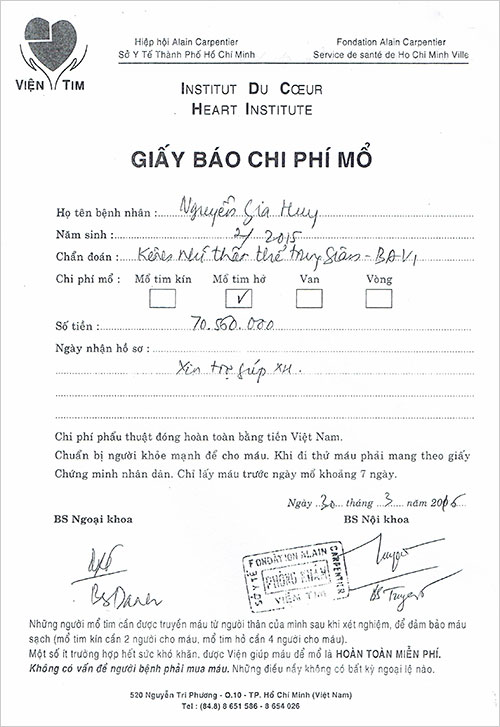 Hiệp hội Alain Carpentier
Sở Y Tế Thành Phố Hồ Chí Minh
Fondation Alain Carpentier
Service de santé de Ho Chi Minh Ville
VIỆN TIM
INSTITUT DU CŒUR
HEART INSTITUTE
GIẤY BÁO CHI PHÍ MỔ
Họ tên bệnh nhân : Nguyễn Gia Huy
Năm sinh : 2/2015
Chẩn đoán : Kênh nhĩ thất thể trung gian - BAV1
Chi phí mổ : Mổ tim kín Mổ tim hở Van Vòng
✓
Số tiền : 70.560.000
Ngày nhận hồ sơ :
Xin trợ giúp XH.
Chi phí phẩu thuật đóng hoàn toàn bằng tiền Việt Nam.
Chuẩn bị người khỏe mạnh để cho máu. Khi đi thử máu phải mang theo giấy
Chứng minh nhân dân. Chỉ lấy máu trước ngày mổ khoảng 7 ngày.
Ngày 30 tháng 3 năm 2015
BS Ngoại khoa
BS Nội khoa
FONDATION ALAIN CARPENTIER
SỞ Y TẾ
PHÒNG KHÁM
VIỆN TIM
Những người mổ tim cần được truyền máu từ người thân của mình sau khi xét nghiệm, để đảm bảo máu
sạch (mổ tim kín cần 2 người cho máu, mổ tim hở cần 4 người cho máu).
Một số ít trường hợp hết sức khó khăn, được Viện giúp máu để mổ là HOÀN TOÀN MIỄN PHÍ.
Không có vấn đề người bệnh phải mua máu. Những điều nầy không có bất kỳ ngoại lệ nào.
520 Nguyễn Tri Phương - Q.10 - TP. Hồ Chí Minh (Việt Nam)
Tel : (84.8) 8 651 586 - 8 654 026